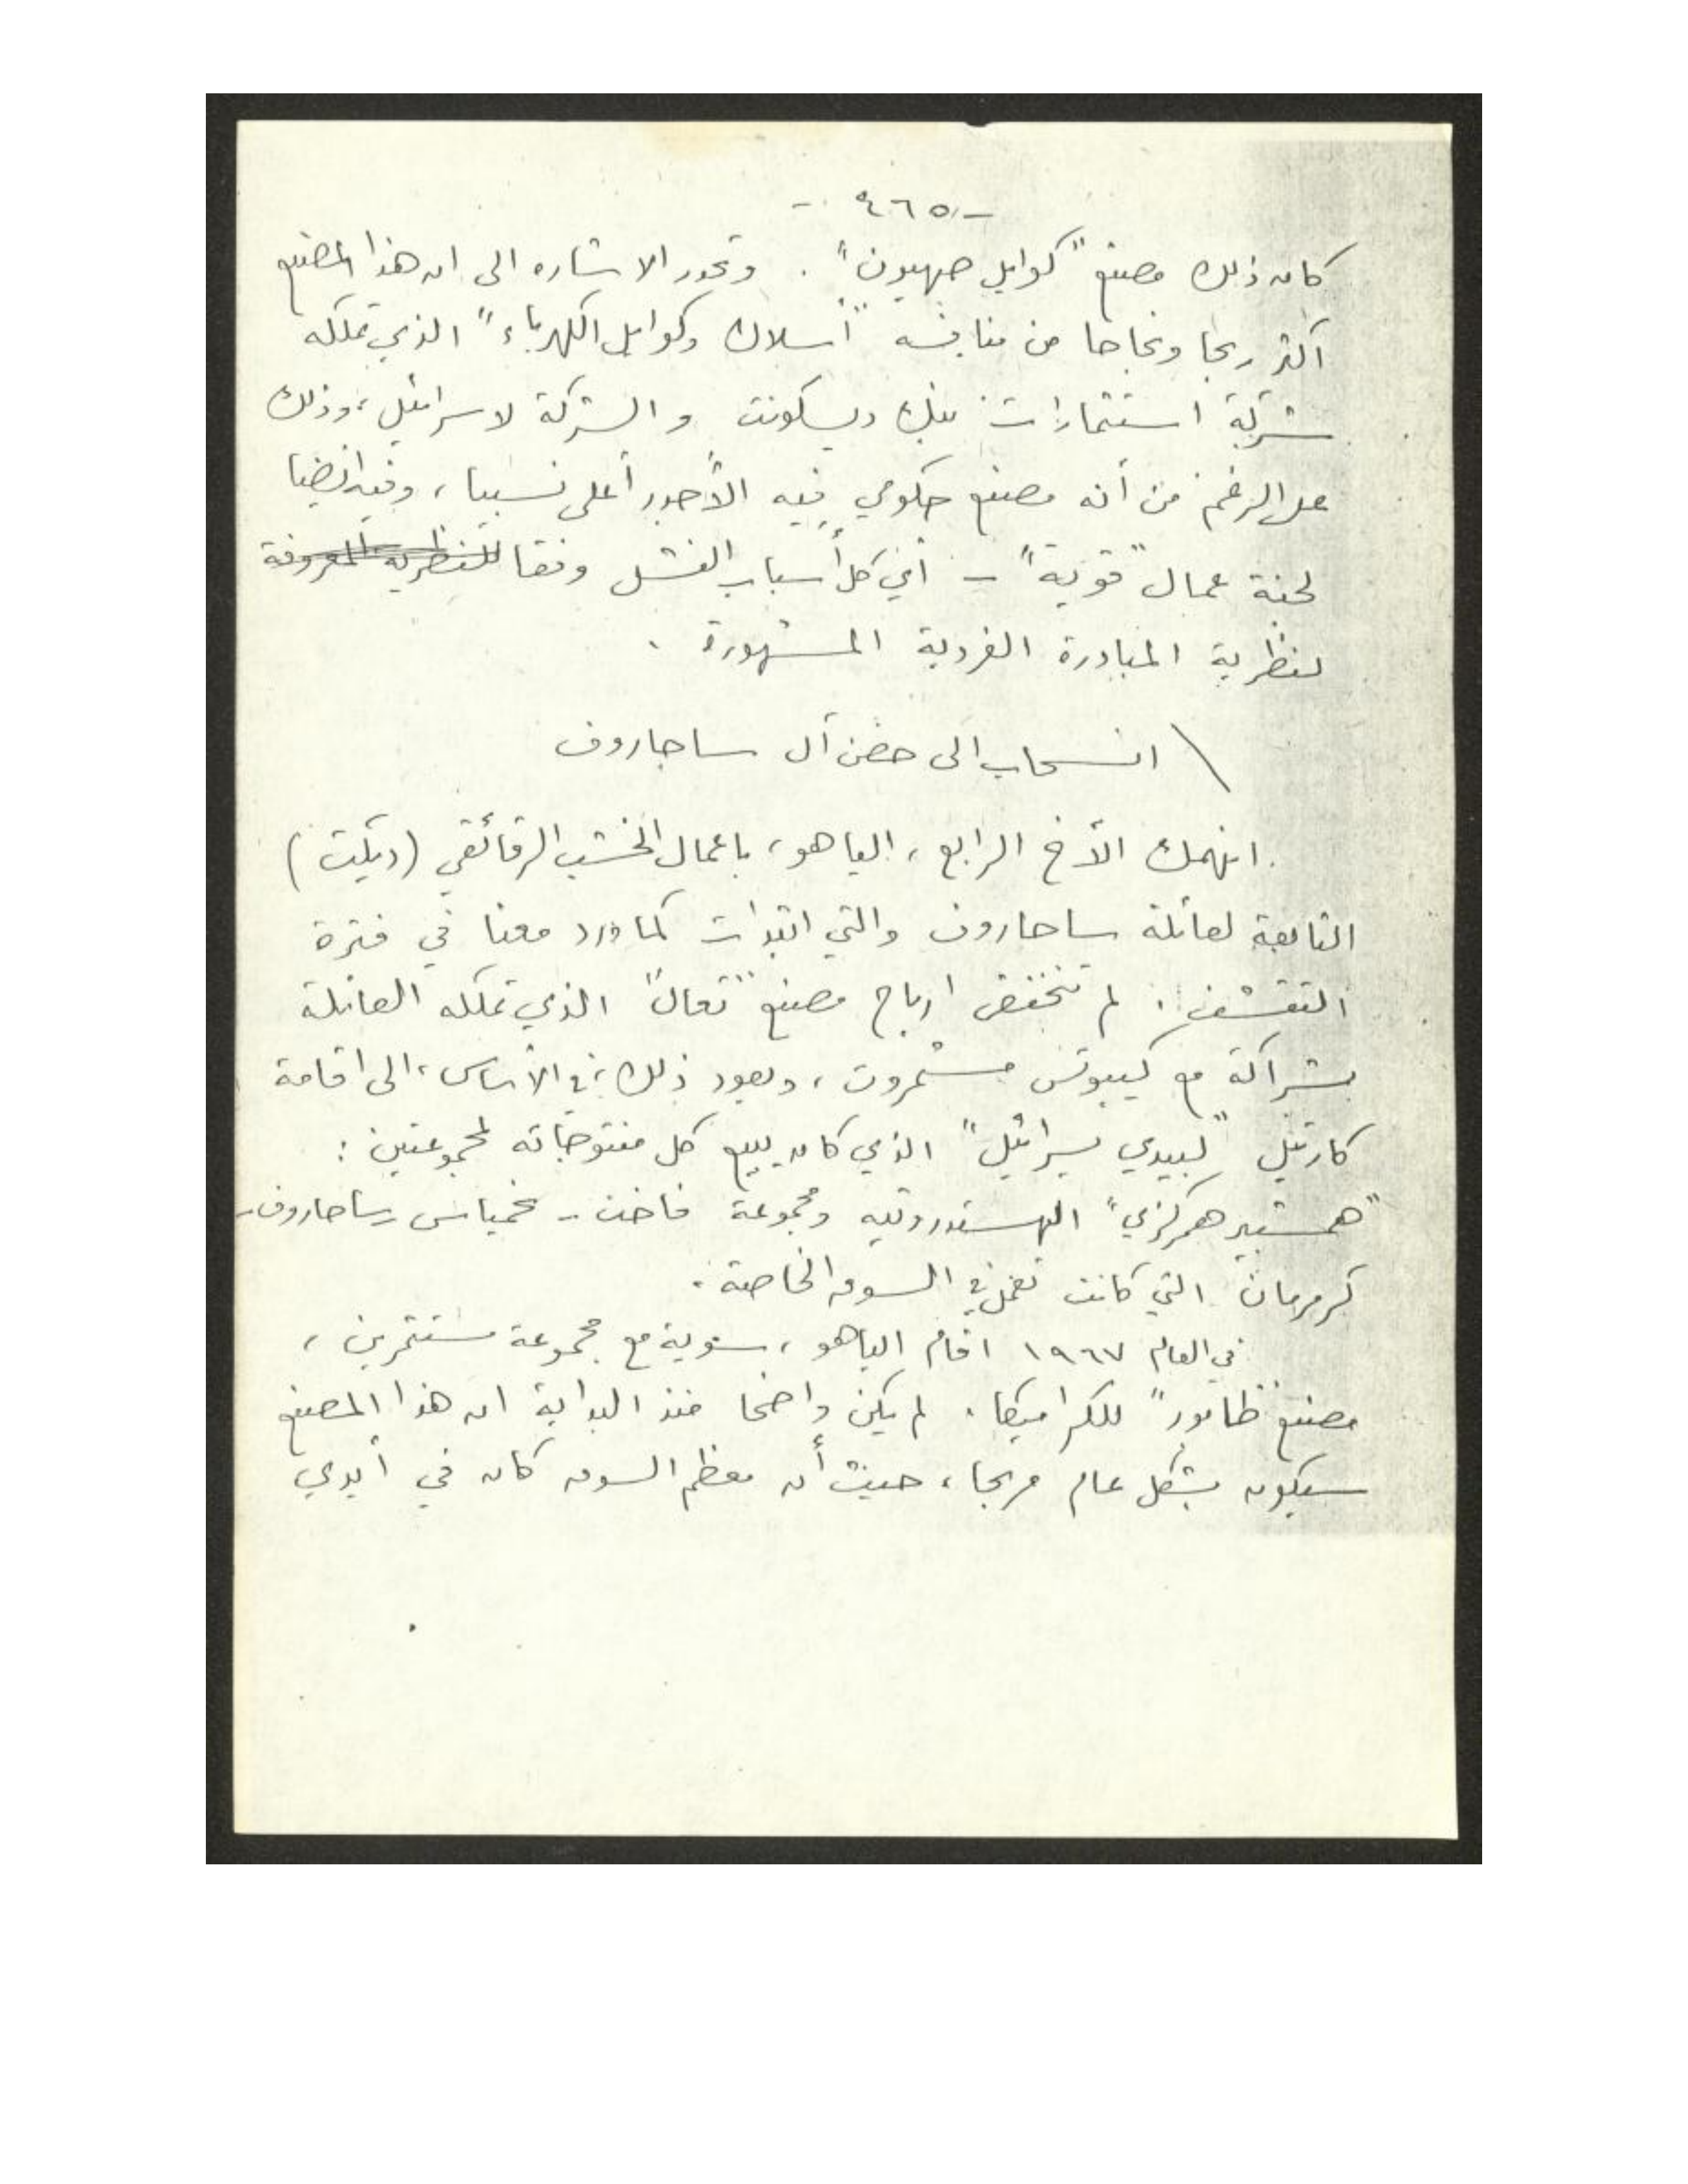 -٤٦٥-
كان ذلك مصنع "كوابل صهيون". وتجدر الاشاره الى ان هذا المصنع
أكثر ربحا ونجاحا من منافسه "أسلاك وكوابل الكهرباء" الذي تملكه
شركة استثمارات بنك ديسكونت والشركة لاسرائيل، وذلك
على الرغم من أنه مصنع حكومي فيه الأجور أعلى نسبيا، وفيه ايضا
لجنة عمال "قوية" - أي كل أسباب الفشل وفقا للنظرية المعروفة
لنظرية المبادرة الفردية المشهورة.
\ انسحاب الى حضن آل ساحاروف
انهمك الأخ الرابع، الياهو، باعمال الخشب الرقائقي (ديكيت)
التابعة لعائلة ساحاروف والتي ابتدات كما ورد معنا في فترة
التقشف. لم تنخفض ارباح مصنع "تعال" الذي تملكه العائلة
بشراكة مع كيبوتس مشمروت، ويعود ذلك، في الأساس، الى اقامة
كارتيل "لبيدي يسرائيل" الذي كان يبيع كل منتوجاته لمجموعتين:
"همشبير همركزي" الهستدروتيه ومجموعة - نحمياس - ساحاروف -
كرمرمان التي كانت تعمل في السوق الخاصة.
في العام ١٩٦٧ اقام الياهو، سوية مع مجموعة مستثمرين،
مصنع للكراميكا. لم يكن واضحا منذ البداية ان هذا المصنع
سيكون بشكل عام مربحا، حيث أن معظم السوق كان في أيدي